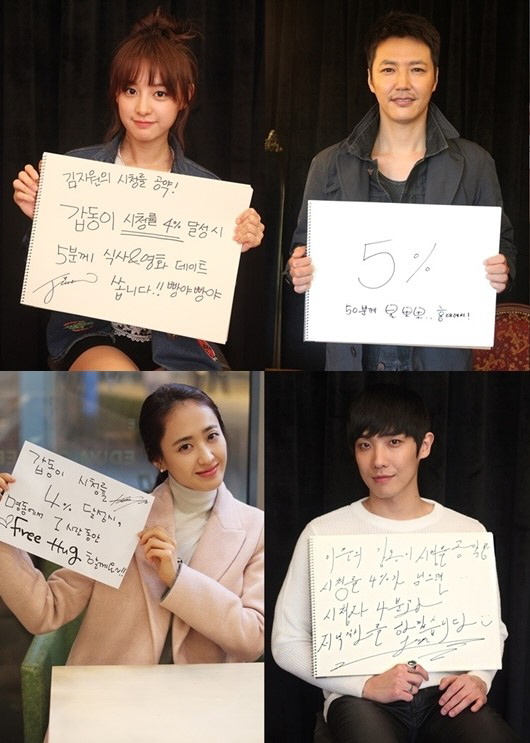 김지원의 시청률 공약!
갑동이 시청률 4% 달성시
5분께 식사&영화 데이트
쏩니다!! 빵야빵야
5%
50분께
갑동이 시청률
4% 달성시,
명동에서 1시간동안
♡Free Hug 할께요!!
이준의 갑동이 시청률 공약
시청률 4%가 넘으면..
시청자 4분과